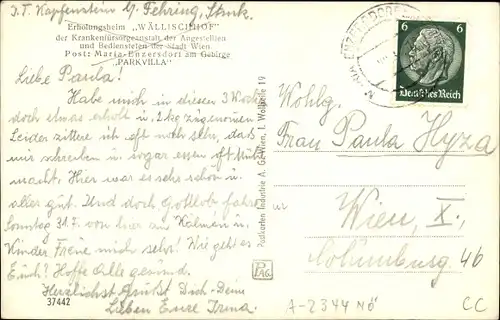 I. T. Kapfenstein b/ Fehring, Stmk.
Erholungsheim „WÄLLISCHHOF"
der Krankenfürsorgeanstalt der Angestellten
und Bediensteten der Stadt Wien
Post: Maria-Enzersdorf am Gebirge
"PARKVILLA"
Liebe Paula!
Habe mich in diesen 3 Woch
doch etwas erholt u. 2 kg zugenommen
Leider zittere ich oft noch sehr, daß
mir schreiben u. sogar essen oft Müh
macht. Hier war es sehr schön u.
alles gut. Und doch Gottlob fahre
Sonntag 31.7. von hier aus Kálmán u.
Kinder freue mich sehr! Wie geht es
Euch? Hoffe Alle gesund.
Herzlichst grüßt Dich-Deine
Lieben Eure Irma.
37442
PAG
Postkarten Industrie A. G. Wien, I. Wollzeile 19
MARIA ENZERSDORF
6 6
Deutsches Reich
Wohlg.
Frau Paula Hyza
Wien, X.,
46
A-2344 NÖ
CC